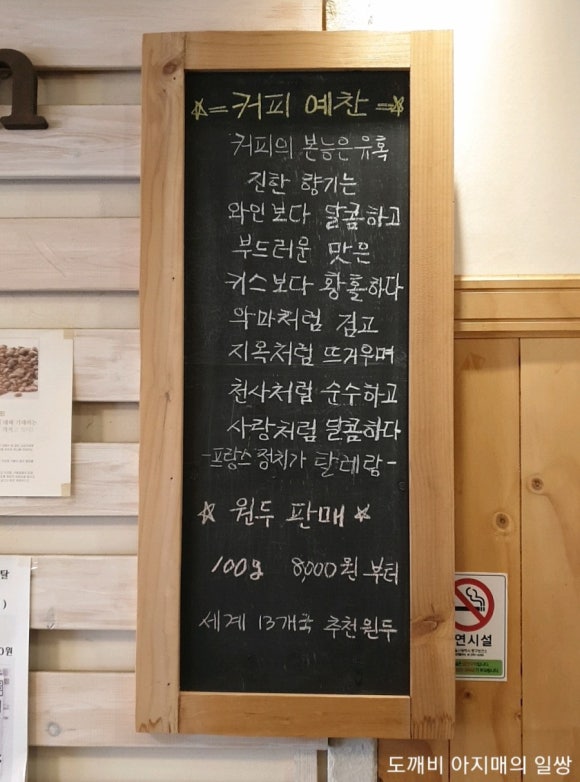 ☆=커피 예찬=☆
커피의 본능은 유혹
진한 향기는
와인보다 달콤하고
부드러운 맛은
키스보다 황홀하다
악마처럼 검고
지옥처럼 뜨거우며
천사처럼 순수하고
사랑처럼 달콤하다
-프랑스 정치가 탈레랑-
☆ 원두 판매 ☆
100g 8,000원 부터
세계 13개국 추천원두
연시설
도깨비 아지매의 일쌍